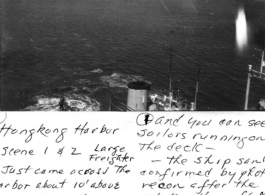 Hongkong Harbor
Scene 1 & 2 Large
Freighter
Just came across The
arbor about 10' above
and you can see
sailors running on
The deck —
— the ship sank
confirmed by phot
recon after the